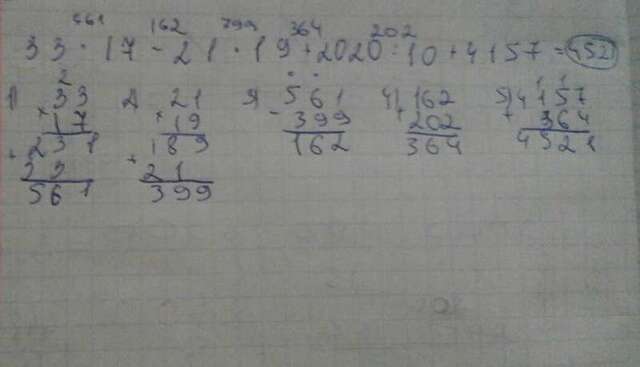 561 162 399 364 202
33·17-21·19+2020:10+4157=4521
2 . . 1 1
1) 33 2) 21 3) 561 4) 162 5) 4157
×17 ×19 -399 +202 +364
231 189 162 364 4521
+33 +21
561 399